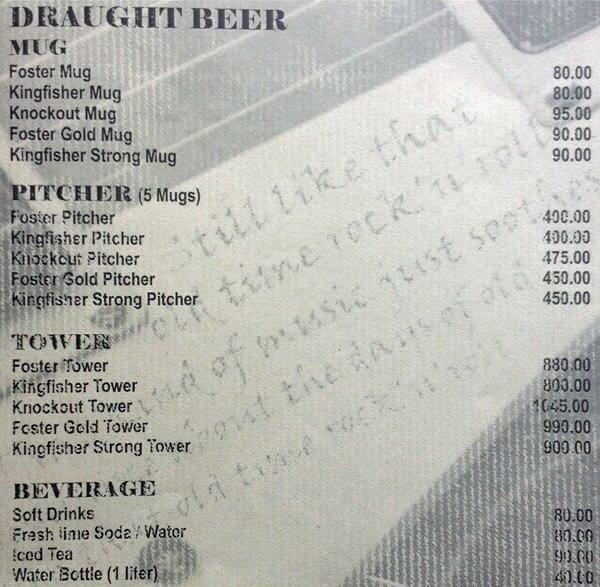 DRAUGHT BEER
MUG
Foster Mug 80.00
Kingfisher Mug 80.00
Knockout Mug 95.00
Foster Gold Mug 90.00
Kingfisher Strong Mug 90.00
PITCHER (5 Mugs)
Foster Pitcher 400.00
Kingfisher Pitcher 400.00
Knockout Pitcher 475.00
Foster Gold Pitcher 450.00
Kingfisher Strong Pitcher 450.00
TOWER
Foster Tower 880.00
Kingfisher Tower 800.00
Knockout Tower 1045.00
Foster Gold Tower 990.00
Kingfisher Strong Tower 900.00
BEVERAGE
Soft Drinks 80.00
Fresh lime Soda / Water 80.00
Iced Tea 90.00
Water Bottle (1 liter) 40.00
Still like that
old time rock'n roll
kind of music just soothes
about the days of old
that old time rock'n